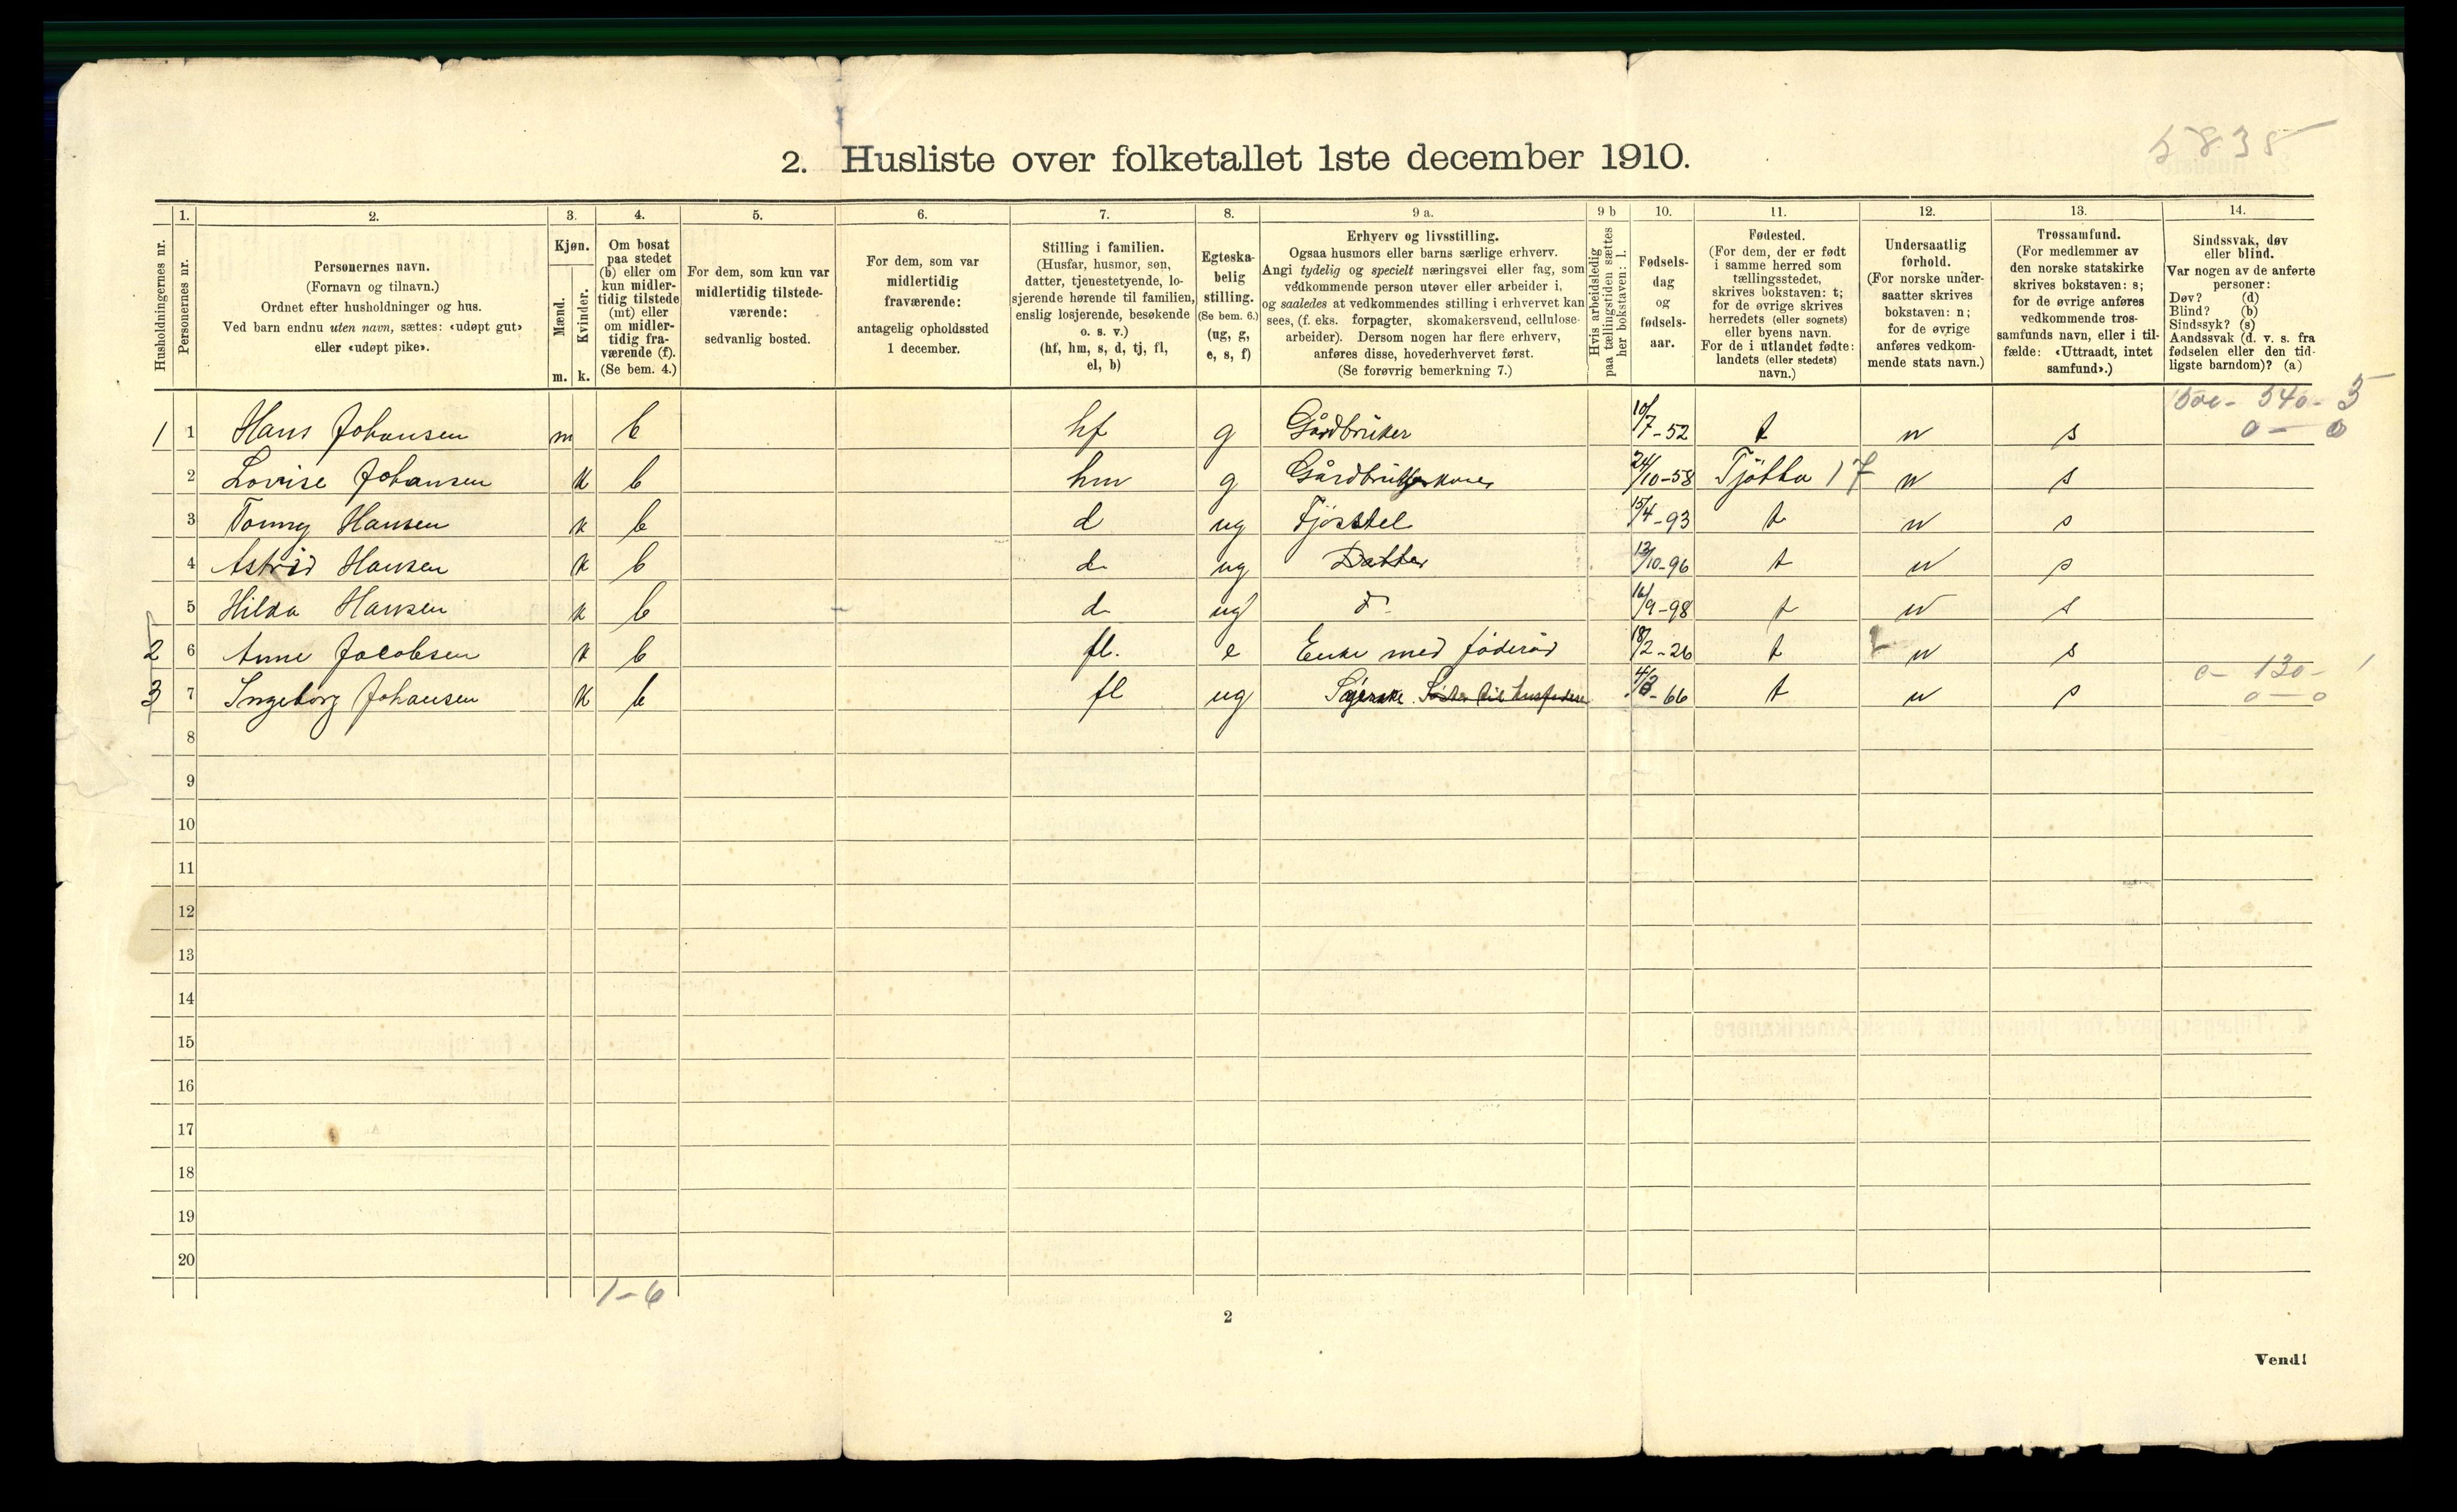 5835
2. Husliste over folketallet 1ste december 1910.
Husholdningernes nr.
1.
Personernes nr.
2.
Personernes navn.
(Fornavn og tilnavn.)
Ordnet efter husholdninger og hus.
Ved barn endnu uten navn, sættes: «udøpt gut»
eller «udøpt pike».
3.
Kjøn.
Mænd.
Kvinder.
m. k.
4.
Om bosat
paa stedet
(b) eller om
kun midler-
tidig tilstede
(mt) eller
om midler-
tidig fra-
værende (f).
(Se bem. 4.)
5.
For dem, som kun var
midlertidig tilstede-
værende:
sedvanlig bosted.
6.
For dem, som var
midlertidig
fraværende:
antagelig opholdssted
1 december.
7.
Stilling i familien.
(Husfar, husmor, søn,
datter, tjenestetyende, lo-
sjerende hørende til familien,
enslig losjerende, besøkende
o. s. v.)
(hf, hm, s, d, tj, fl,
el, b)
8.
Egteska-
belig
stilling.
(Se bem. 6.)
(ug, g,
e, s, f)
9 a.
Erhverv og livsstilling.
Ogsaa husmors eller barns særlige erhverv.
Angi tydelig og specielt næringsvei eller fag, som
vedkommende person utøver eller arbeider i,
og saaledes at vedkommendes stilling i erhvervet kan
sees, (f. eks. forpagter, skomakersvend, cellulose-
arbeider). Dersom nogen har flere erhverv,
anføres disse, hovederhvervet først.
(Se forøvrig bemerkning 7.)
9 b
Hvis arbeidsledig
paa tællingstiden sættes
her bokstaven: l.
10.
Fødsels-
dag
og
fødsels-
aar.
11.
Fødested.
(For dem, der er født
i samme herred som
tællingsstedet,
skrives bokstaven: t;
for de øvrige skrives
herredets (eller sognets)
eller byens navn.
For de i utlandet fødte:
landets (eller stedets)
navn.)
12.
Undersaatlig
forhold.
(For norske under-
saatter skrives
bokstaven: n;
for de øvrige
anføres vedkom-
mende stats navn.)
13.
Trossamfund.
(For medlemmer av
den norske statskirke
skrives bokstaven: s;
for de øvrige anføres
vedkommende tros-
samfunds navn, eller i til-
fælde: «Uttraadt, intet
samfund».)
14.
Sindssvak, døv
eller blind.
Var nogen av de anførte
personer:
Døv? (d)
Blind? (b)
Sindssyk? (s)
Aandssvak (d. v. s. fra
fødselen eller den tid-
ligste barndom)? (a)
1 1 Hans Johansen m b hf g Gårdbruker 10/7-52 t n s 1500- 540- 5
0 - 0
2 Lovise Johansen k b hm g Gårdbrukerkone 24/10-58 Tjøtta 17 n s
3 Tonny Hansen k b d ug Fjøsstel 15/4-93 t n s
4 Astrid Hansen k b d ug Datter 13/10-96 t n s
5 Hilda Hansen k b d ug 16/9-98 t n s
2 6 Anne Jacobsen k b fl. e Enke med føderåd 18/2-26 t n s
3 7 Ingeborg Johansen k b fl ug Syerske Søster til husfaderen -66 t n s 0- 130- 1
0 - 0
8
9
10
11
12
13
14
15
16
17
18
19
20
1-6
2
Vend!